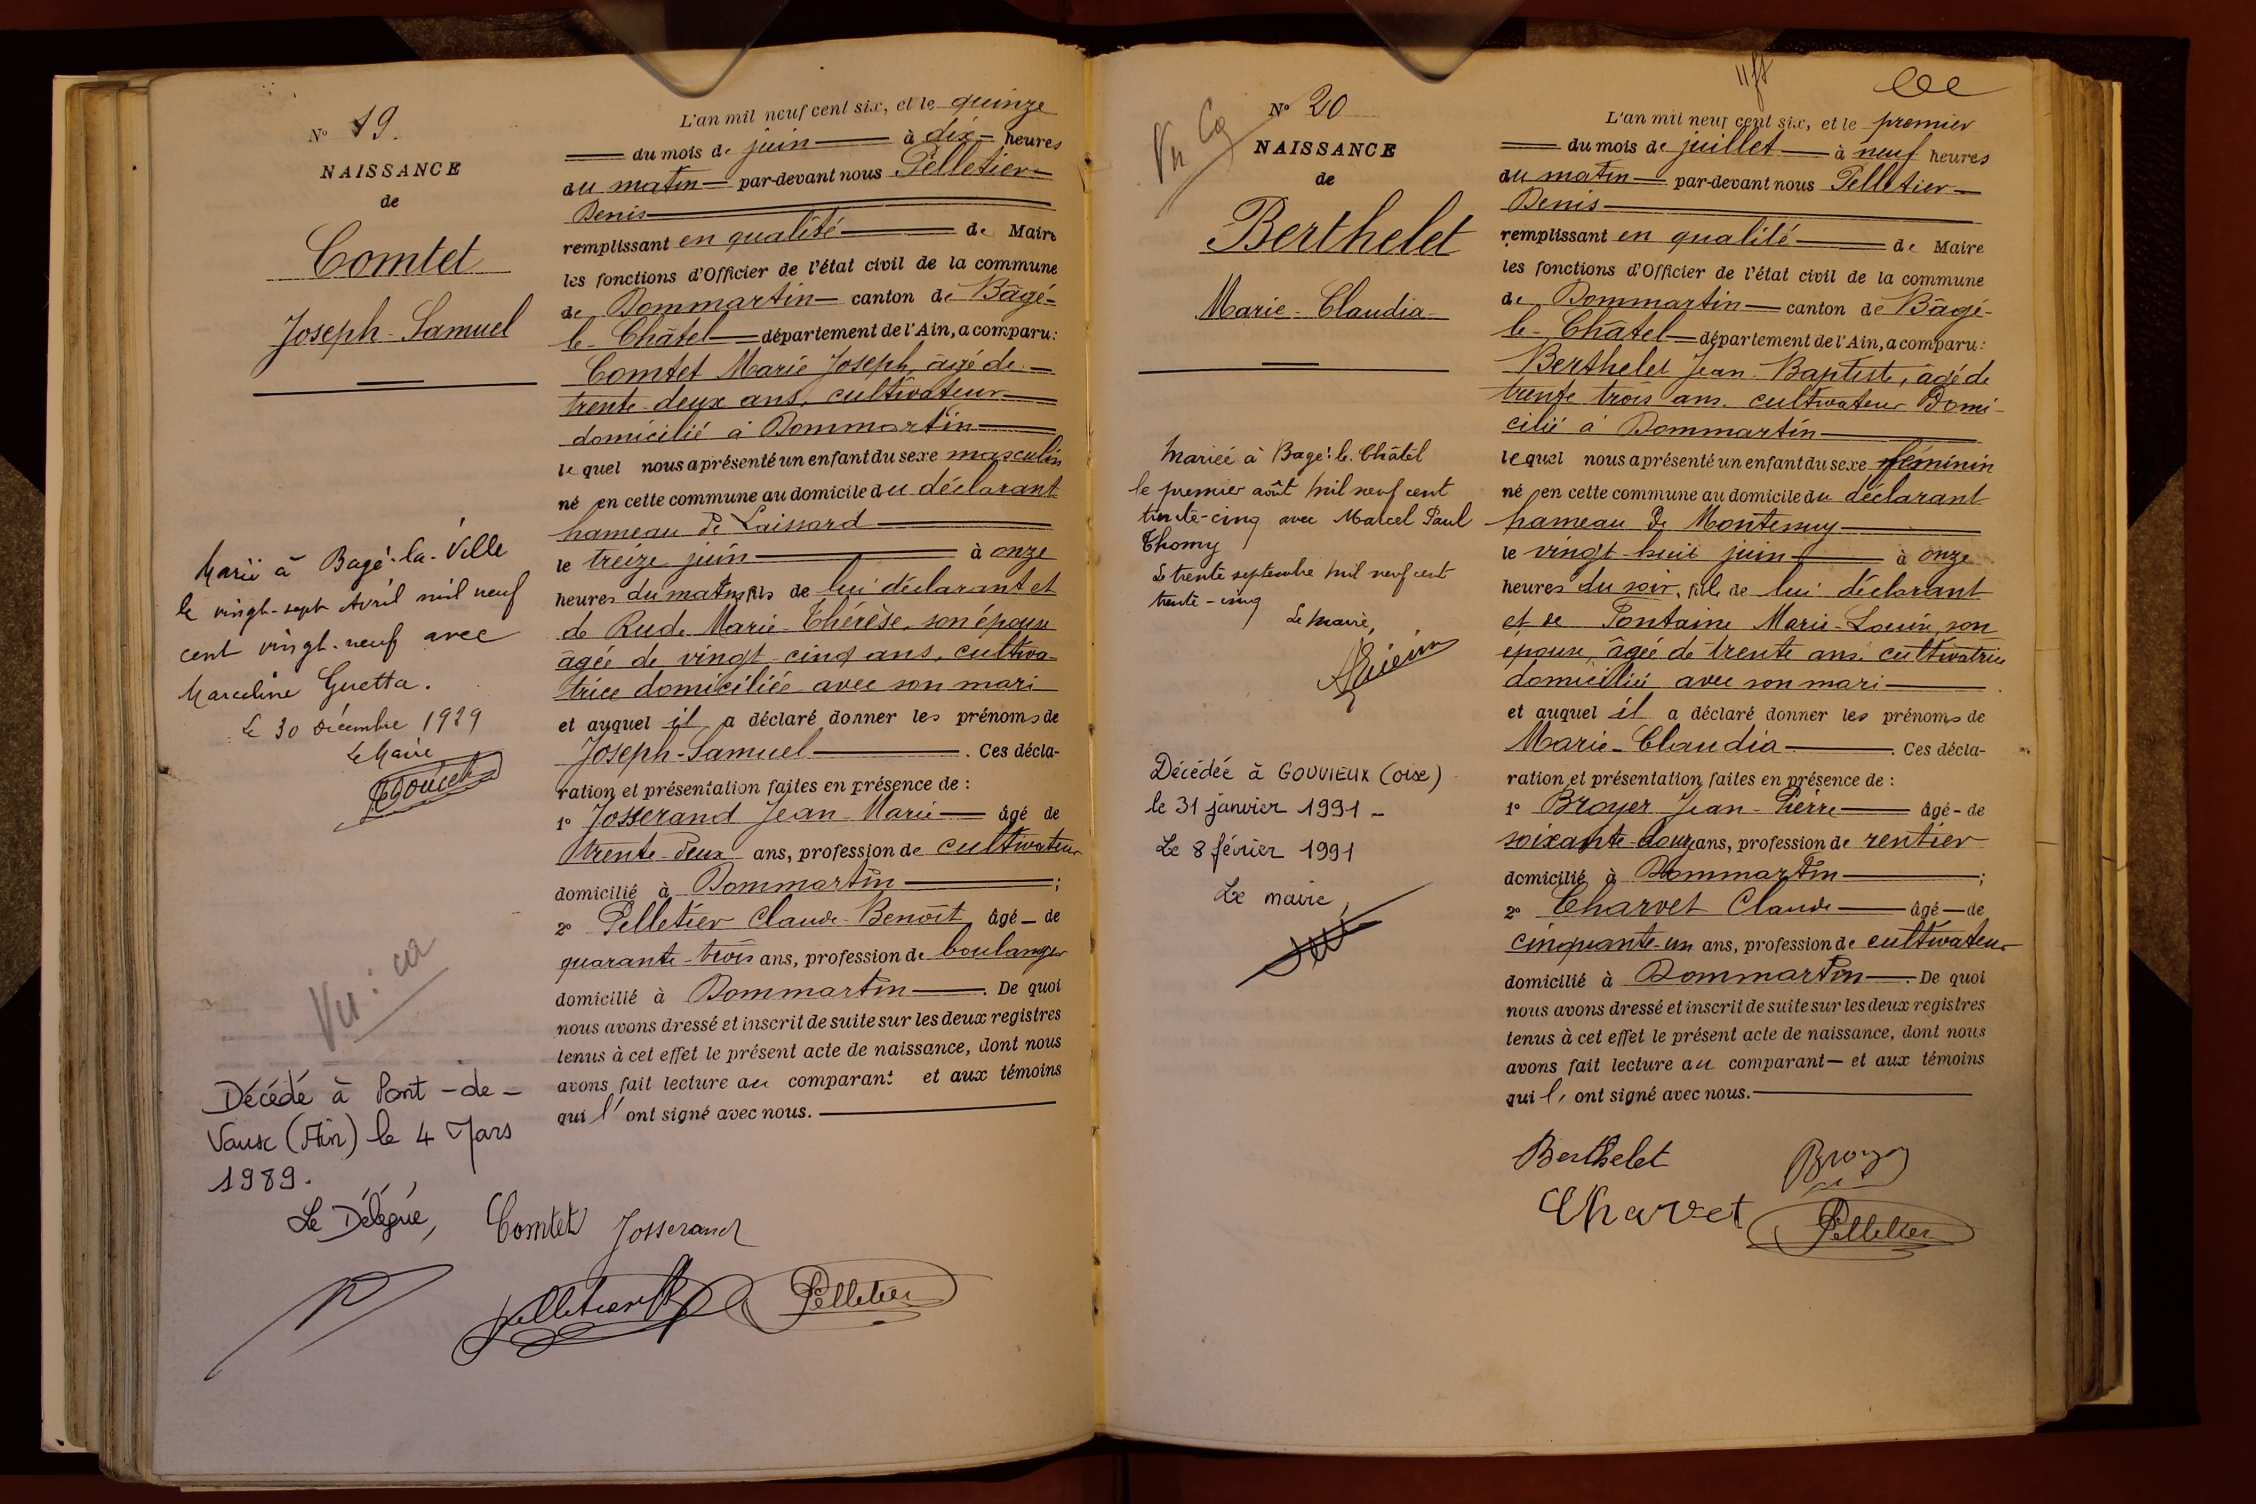 N° 19.
NAISSANCE
de
Comtet
Joseph-Samuel
Marié à Bagé-la-Ville
le vingt-sept Avril mil neuf
cent vingt-neuf avec
Marceline Guetta.
Le 30 Décembre 1929
Le Maire
Vu : ca
Décédé à Pont-de-
Vaux (Ain) le 4 Mars
1989.
Le Délégué,
L'an mil neuf cent six, et le quinze
du mois de juin à dix heures
du matin par-devant nous Pelletier
Denis
remplissant en qualité de Maire
les fonctions d'Officier de l'état civil de la commune
de Dommartin canton de Bâgé-
le-Châtel département de l'Ain, a comparu :
Comtet Marie Joseph, âgé de
trente-deux ans, cultivateur
domicilié à Dommartin
lequel nous a présenté un enfant du sexe masculin
né en cette commune au domicile du déclarant
hameau de Laissard
le treize juin à onze
heures du matin fils de lui déclarant et
de Rude Marie-Thérèse, son épouse
âgée de vingt-cinq ans, cultiva-
trice domiciliée avec son mari
et auquel il a déclaré donner les prénoms de
Joseph-Samuel. Ces décla-
ration et présentation faites en présence de :
1° Josserand Jean-Marie âgé de
trente-deux ans, profession de cultivateur
domicilié à Dommartin ;
2° Pelletier Claude-Benoit, âgé de
quarante-trois ans, profession de boulanger
domicilié à Dommartin. De quoi
nous avons dressé et inscrit de suite sur les deux registres
tenus à cet effet le présent acte de naissance, dont nous
avons fait lecture au comparant et aux témoins
qui l'ont signé avec nous.
Comtet Josserand
Pelletier Pelletier
N° 20
NAISSANCE
de
Berthelet
Marie-Claudia
Mariée à Bagé-le-Châtel
le premier août mil neuf cent
trente-cinq avec Marcel Paul
Thomy
Le trente septembre mil neuf cent
trente-cinq
Le Maire,
Décédée à GOUVIEUX (Oise)
le 31 janvier 1991 -
Le 8 février 1991
Le maire,
L'an mil neuf cent six, et le premier
du mois de juillet à neuf heures
du matin par-devant nous Pelletier
Denis
remplissant en qualité de Maire
les fonctions d'Officier de l'état civil de la commune
de Dommartin canton de Bâgé-
le-Châtel département de l'Ain, a comparu :
Berthelet Jean-Baptiste, âgé de
trente trois ans, cultivateur Domi-
cilié à Dommartin
lequel nous a présenté un enfant du sexe féminin
né en cette commune au domicile du déclarant
hameau de Montemuy
le vingt huit juin à onze
heures du soir, fille de lui déclarant
et de Fontaine Marie-Louise, son
épouse, âgée de trente ans, cultivatrice
domiciliée avec son mari
et auquel il a déclaré donner les prénoms de
Marie-Claudia. Ces décla-
ration et présentation faites en présence de :
1° Broyer Jean-Pierre âgé de
soixante-douze ans, profession de rentier
domicilié à Dommartin ;
2° Charvet Claude âgé de
cinquante-un ans, profession de cultivateur
domicilié à Dommartin. De quoi
nous avons dressé et inscrit de suite sur les deux registres
tenus à cet effet le présent acte de naissance, dont nous
avons fait lecture au comparant et aux témoins
qui l'ont signé avec nous.
Berthelet Broyer
Charvet Pelletier